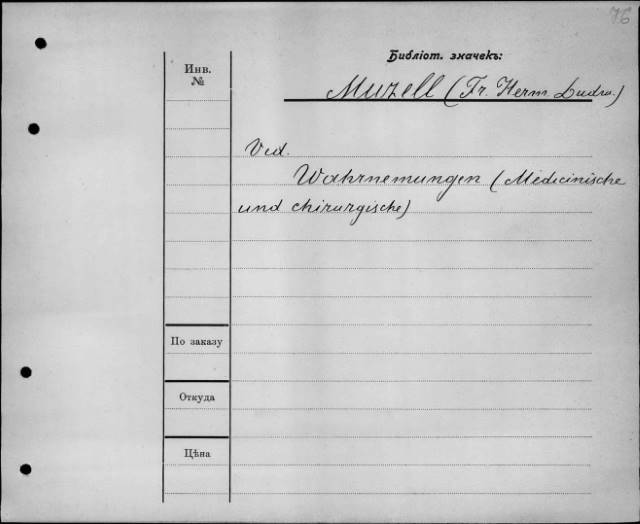 76
Библіот. значекъ:
Инв.
№
Muzell (Fr. Herm. Ludw.)
Vid.
Wahrnemungen (Medicinische
und chirurgische)
По заказу
Откуда
Цѣна